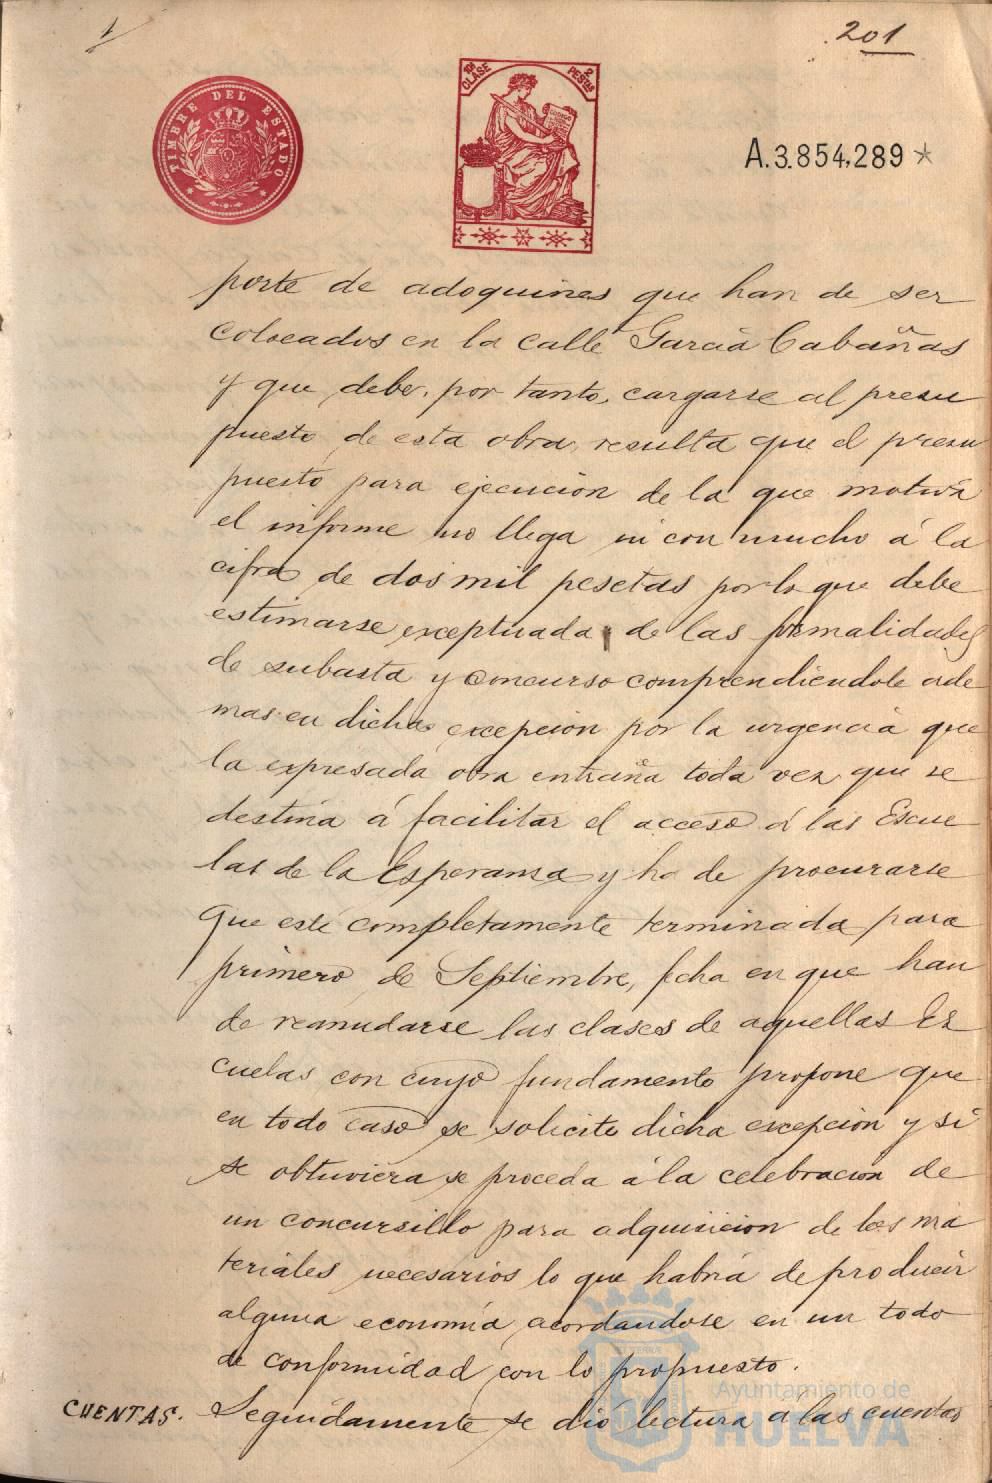 1
201
TIMBRE DEL ESTADO
11ª CLASE
2 PESTAS
A.3.854.289
porte de adoquines que han de ser
colocados en la calle Garcia Cabañas
y que debe, por tanto, cargarse al presu
puesto de esta obra, resulta que el presu
puesto para ejecucion de la que motiva
el informe no llega ni con mucho á la
cifra de dos mil pesetas por lo que debe
estimarse exceptuada de las formalidades
de subasta y concurso comprendiendole ade
mas en dicha excepcion por la urgencia que
la expresada obra entraña toda vez que se
destina á facilitar el acceso á las Escue
las de la Esperanza y ha de procurarse
que esté completamente terminada para
primero de Septiembre, fcha en que han
de reanudarse las clases de aquellas Es
cuelas con cuyo fundamento propone que
en todo caso se solicite dicha excepcion y si
se obtuviera se proceda á la celebracion de
un concursillo para adquisicion de los ma
teriales necesarios lo que habria de producir
alguna economía acordandose en un todo
de conformidad con lo propuesto.
CUENTAS. Seguidamente se dió lectura á las cuentas
Ayuntamiento de
HUELVA